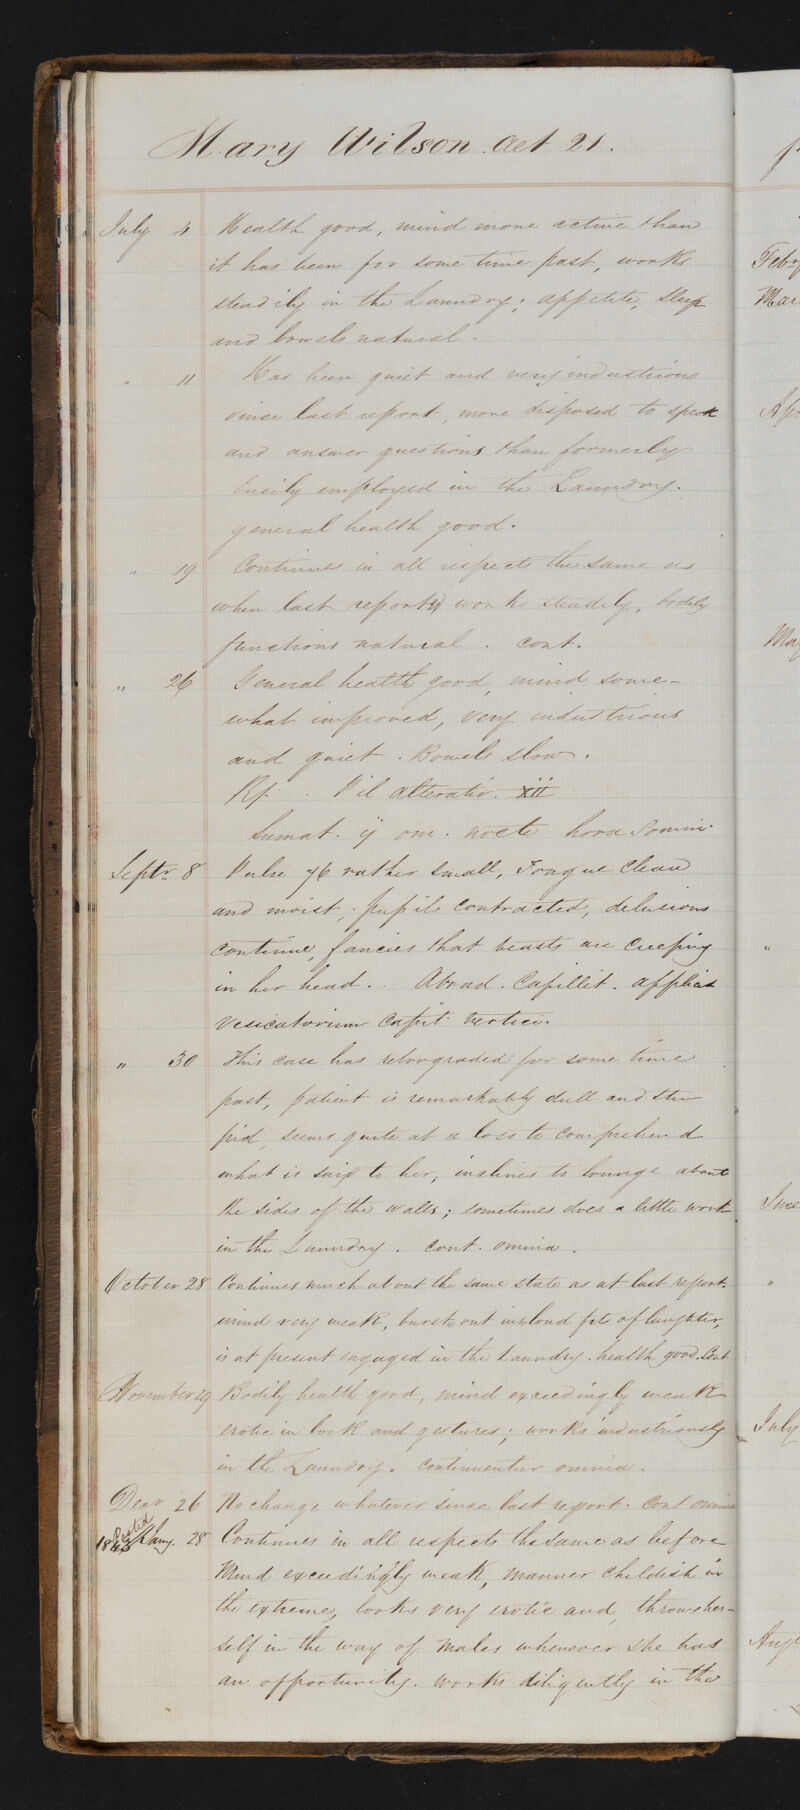 Mary Wilson aet 21.
July 4 Health good, mind more active than
it has been for some time past, works
steadily in the Laundry; appetite, sleep
and bowels natural.
" 11 Has been quiet and very industrious
since last report, more disposed to speak
and answer questions than formerly
busily employed in the Laundry.
general health good.
" 19 Continues in all respects the same as
when last reported works steadily, bodily
functions natural. cont.
" 26 General health good, mind some-
what improved, very industrious
and quiet. Bowels slow.
Rp. Pil alterativ. xii
Sumat. ij om. nocte hora somni.
Septr. 8 Pulse 76 rather small, Tongue clean
and moist, pupils contracted, delusions
continue, fancies that beasts are creeping
in her head. Abrad. Capillit. applicat
vesicatorium capit. vertici.
" 30 This case has retrograded for some time
past, patient is remarkably dull and stu
pid, seems quite at a loss to comprehend
what is said to her, inclines to lounge about
the sides of the walls; sometimes does a little work
in the Laundry. cont. omnia.
October 28 Continues much about the same state as at last report.
mind very weak, bursts out in loud fits of laughter,
is at present engaged in the Laundry. health good. Cont
November 29 Bodily health good, mind exceedingly weak
erotic in look and gestures; works industriously
in the Laundry. continuentur omnia.
Decr 26 No change whatever since last report. Cont omnia
Jany. 28 Continues in all respects the same as before
Mind exceedingly weak, manner childish in
the extreme, looks very erotic and, throws her-
self in the way of males whenever she has
an opportunity. works diligently in the
Feby
Mar
Apr
May
"
June
"
July
Augt